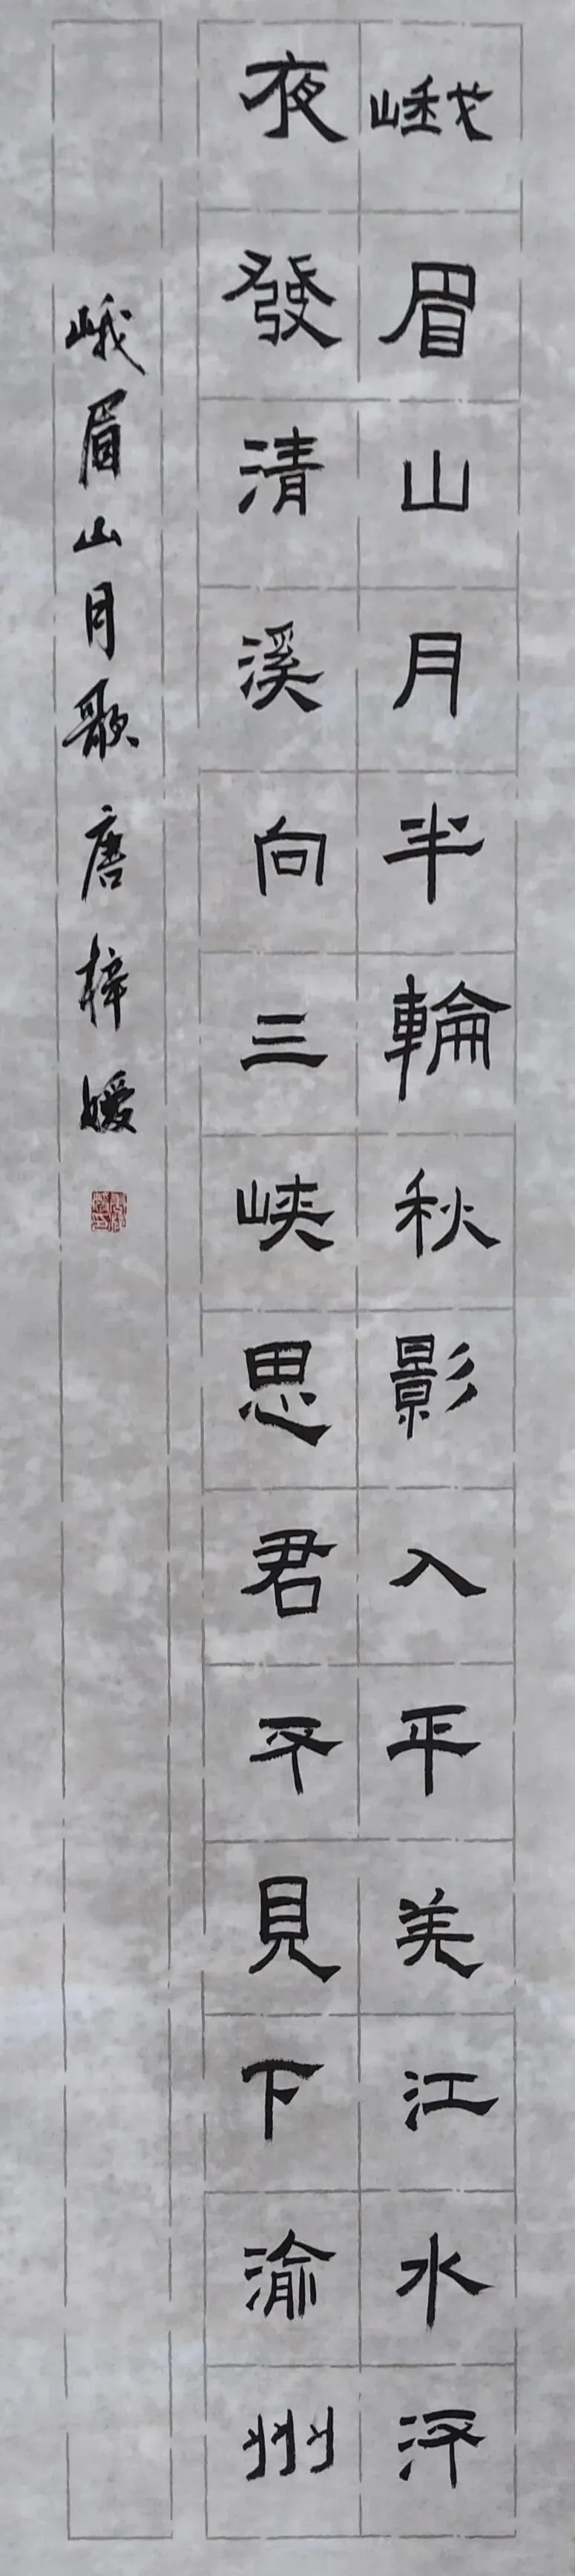 峨眉山月半輪秋影入平羌江水流
夜發清溪向三峡思君不見下渝州
峨眉山月歌 唐梓嫒